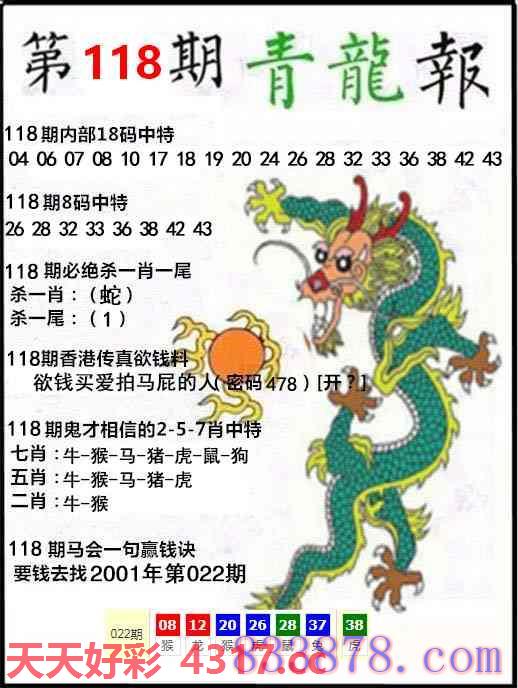 第118期青龍報
118期内部18码中特
04 06 07 08 10 17 18 19 20 24 26 28 32 33 36 38 42 43
118期8码中特
26 28 32 33 36 38 42 43
118期必绝杀一肖一尾
杀一肖：（蛇）
杀一尾：（1）
118期香港传真欲钱料
欲钱买爱拍马屁的人(密码478)[开？]
118期鬼才相信的2-5-7肖中特
七肖：牛-猴-马-猪-虎-鼠-狗
五肖：牛-猴-马-猪-虎
二肖：牛-猴
118期马会一句赢钱诀
要钱去找2001年第022期
022期 08 12 20 26 28 37 38
猴 龙 猴 虎 鼠 兔 虎
天天好彩 4317.cc
838878.com